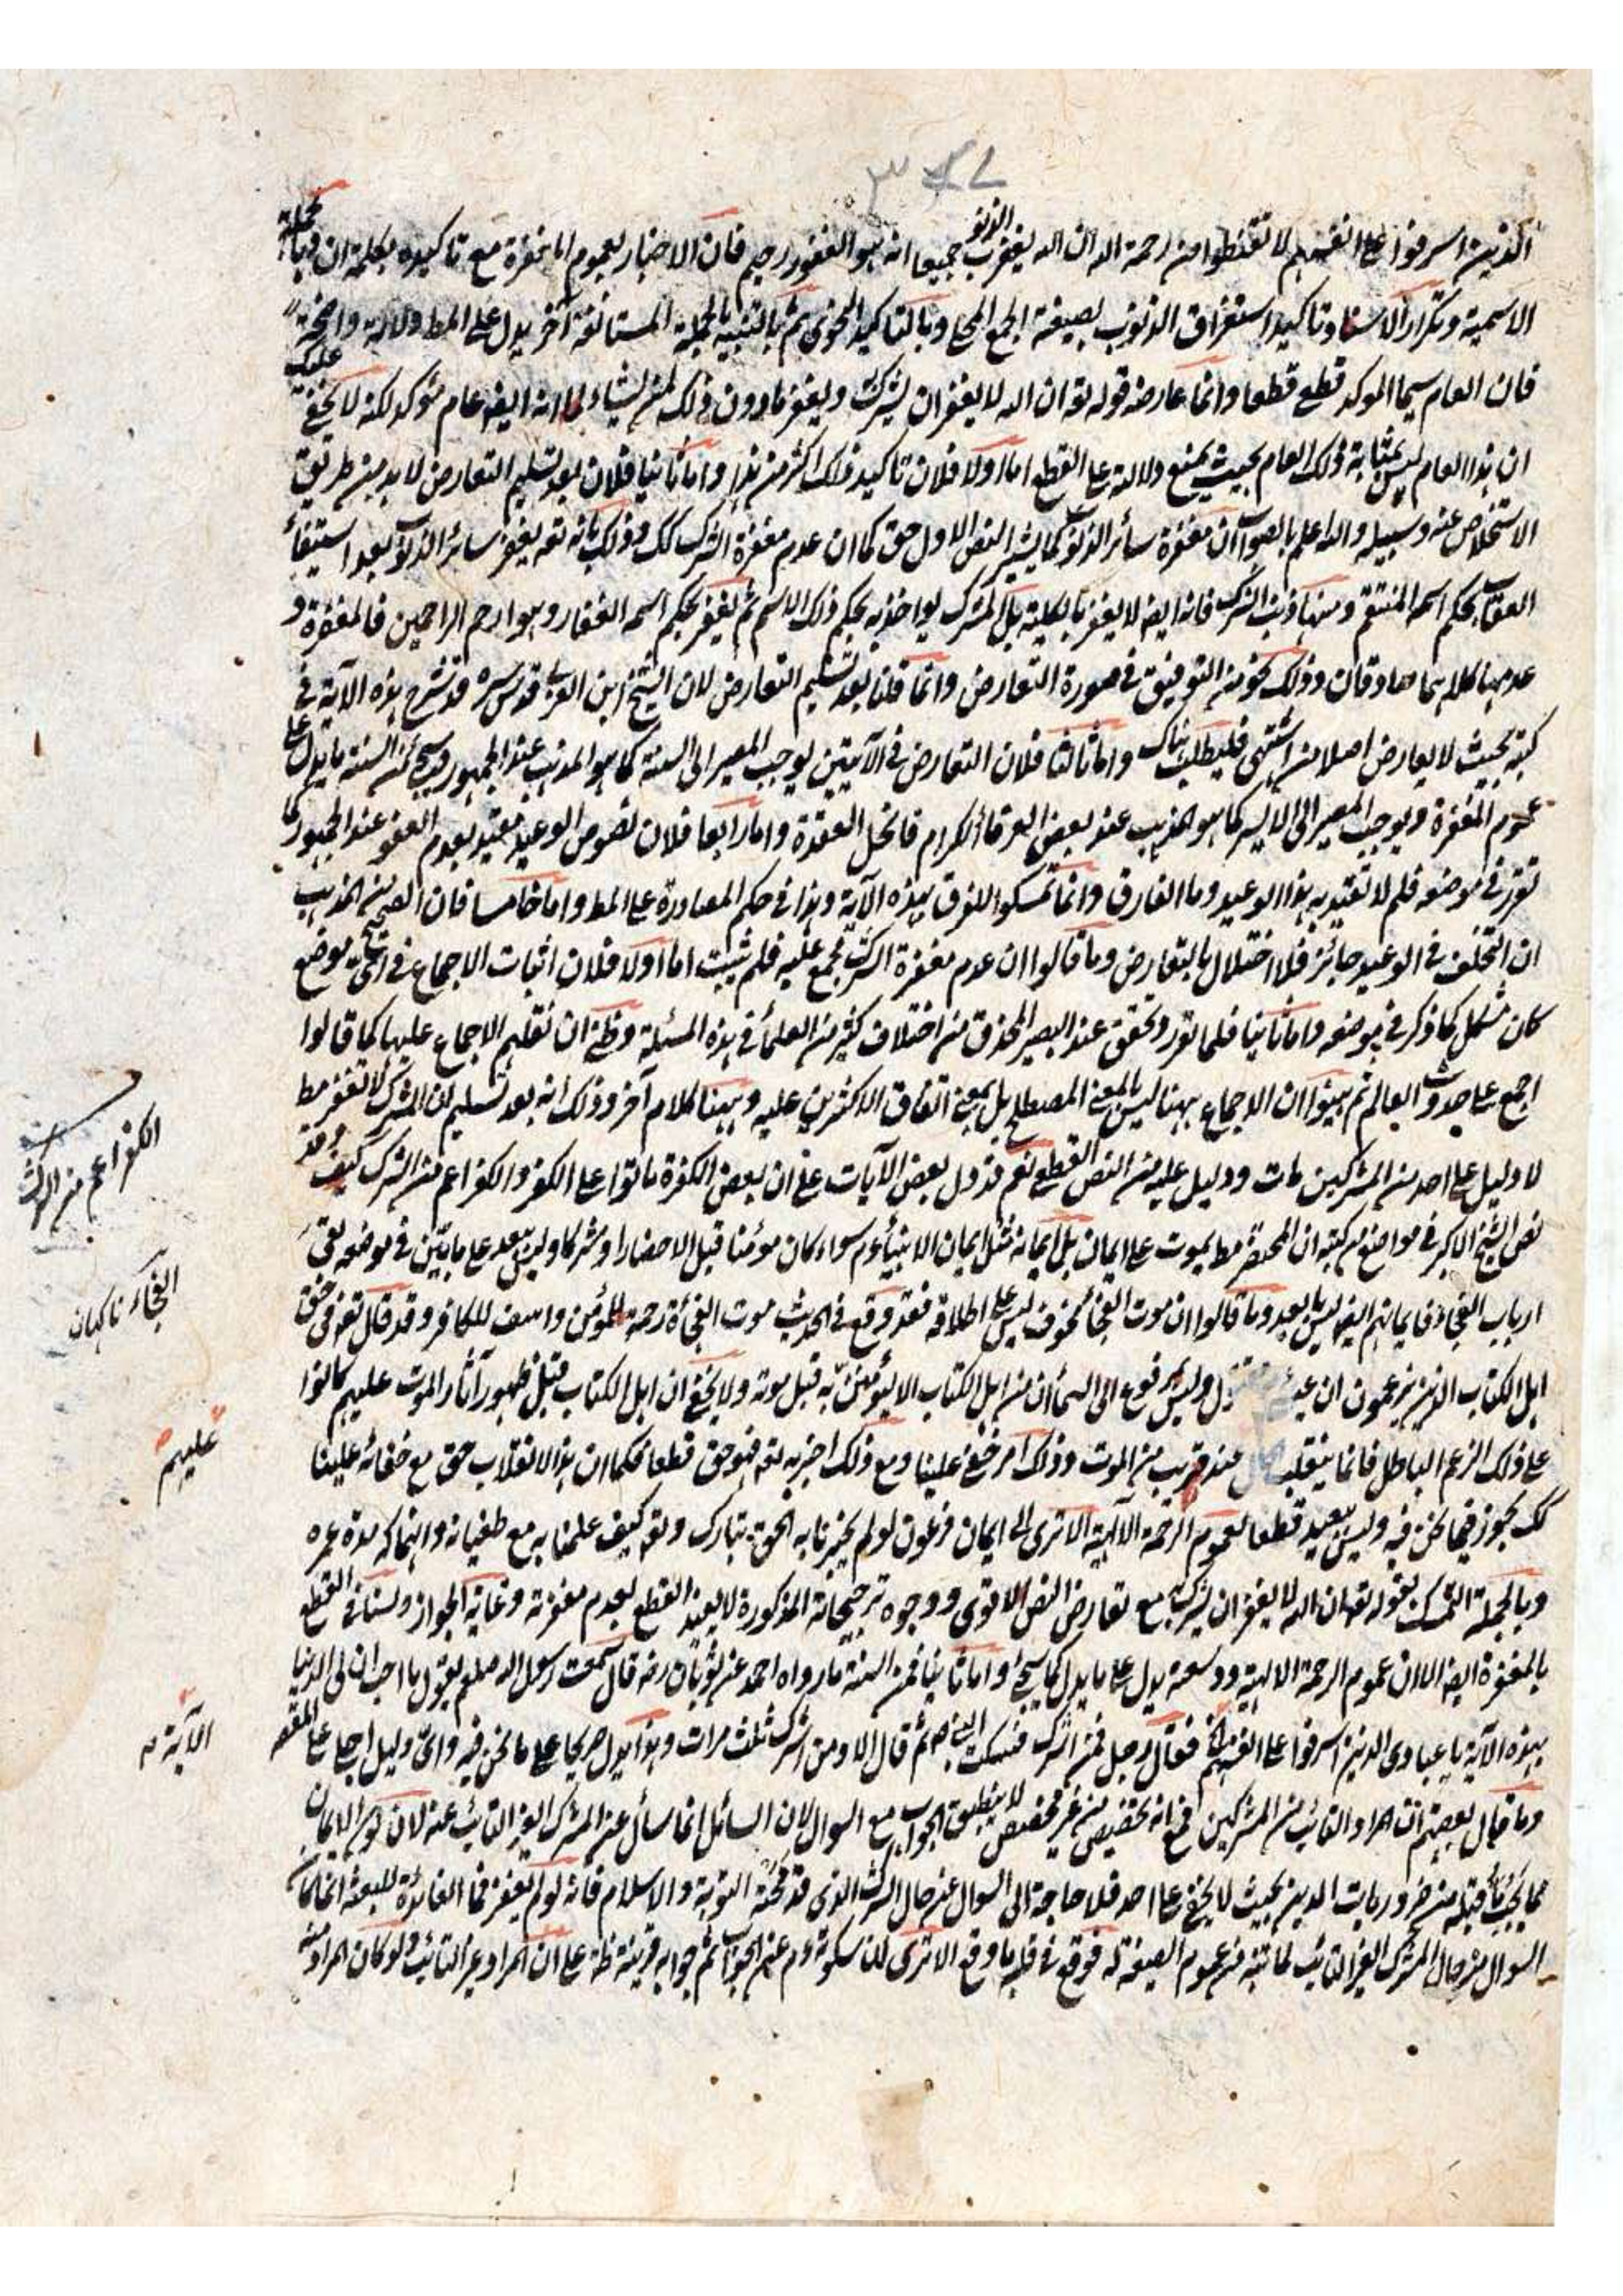 ٣٤٧
الذين اسرفوا على انفسهم لا تقنطوا من رحمة الله ان الله يغفر الذنوب جميعا انه هو الغفور رحيم فان الاخبار بعموم المغفرة مع تاكيده بكلمة ان وبالجملة
الاسمية وتكرار الاسناد وتاكيد استغراق الذنوب بصيغة الجمع المحلى وبالتاكيد المعنوى ثم بالتنبيه بالجملة المستانفة آخر يدل على المط دلالة واضحة
فان العام سيما الموكد قطعى قطعا وانما عارضه قوله تع ان الله لا يغفر ان يشرك ويغفر ما دون ذلك لمن يشاء لما انه ايضا عام موكد لكنه لا يخفى عليك
ان هذا العام ليس بمثابة ذلك العام بحيث يمنع دلالته على القطع اما اولا فلان تاكيد ذلك اكثر من هذا واما ثانيا فلان بعد تسليم التعارض لا بد من طريق
الاستخلاص عنه وسبيله والله اعلم بالصواب ان مغفرة سائر الذنوب كما يشير النص الاول حق كما ان عدم مغفرة الشرك كك وذلك بانه تعه يغفر سائر الذنوب بعد استيفاء
العقاب بحكم اسمه المنتقم ومنها ذنب الشرك فانه ايضا لا يغفر بالكلية بل المشرك يواخذ به بحكم ذلك الاسم ثم يغفر بحكم اسمه الغفار وهو ارحم الراحمين فالمغفرة و
عدمها كلاهما صادقان وذلك نحو من التوفيق فى صورة التعارض وانما قلنا بعد تسليم التعارض لان الشيخ ابن العربى قدس سره قد شرح هذه الآية فى
كتبه بحيث لا يعارض اصلا من اشتهى فليطلب هناك واما ثالثا فلان التعارض فى الآيتين يوجب المصير الى السنة كما هو المذهب عند الجمهور وسيجئ من السنة ما يدل على
عموم المغفرة ويوجب المصير الى الايسر كما هو المذهب عند بعض العرفاء الكرام فانحل العقدة واما رابعا فلان نصوص الوعيد مقيد بعدم العفو عند الجمهور كما
تقرر فى موضعه فلم لا تقيد به هذا الوعيد وما الفارق وانما تمسكوا للفرق بهذه الآية وهذا فى حكم المصادرة على المط واما خامسا فان الصحيح من المذهب
ان التخلف فى الوعيد جائز فلا اختلال بالتعارض وما قالوا ان عدم مغفرة الشرك مجمع عليه فلم يثبت اما اولا فلان اثبات الاجماع فى اى موضع
كان مشكل كما ذكر فى موضعه واما ثانيا فلما تقرر وتحقق عند البصير المحذق من اختلاف كثير من العلماء فى هذه المسئلة وظنى ان نقلهم الاجماع عليها كما قالوا
اجمع على حدوث العالم ثم بينوا ان الاجماع ههنا ليس بالمعنى المصطلح بل بمعنى اتفاق الاكثرين عليه وههنا كلام آخر وذلك انه بعد تسليم ان المشرك لا تغفر مط
لا دليل على احد من المشركين مات ودليل عليه من النص القطعى نعم قد دل بعض الآيات على ان بعض الكفرة ماتوا على الكفر والكفر اعم من الشرك كيف وقد
نص الشيخ الاكبر فى مواضع من كتبه ان المحتضر مط يموت على الايمان بل ايمانه مثل ايمان الانبياء وم سواء كان مؤمنا قبل الاحضار او مشركا وليس ببعيد على ما بين فى موضعه بقى
ارباب الفجاءة فايمانهم ايضا ليس ببعيد وما قالوا ان موت الفجاء مخوف ليس على اطلاقه فقد وقع فى الحديث موت الفجاءة رحمة للمؤمن واسف للكافر وقد قال تعه فى حق
اهل الكتاب الذين يزعمون ان عيسى مقتول وليس مرفوع الى السماء ان من اهل الكتاب الا ليؤمنن به قبل موته ولا يخفى ان اهل الكتاب قبل ظهور آثار الموت عليهم كانوا
على ذلك الزعم الباطل فانما ينقلب عند قريب من الموت وذلك امر خفى علينا ومع ذلك اخبر به تعه فهو حق قطعا فكما ان هذا الانقلاب حق مع خفائه علينا
كك يجوز فيما نحن فيه وليس ببعيد قطعا لعموم الرحمة الالهية الا ترى الى ايمان فرعون لو لم يخبرنا به الحق تبارك وتعه كيف علمنا به مع طغيانه وانهماكه مدة عمره
وبالجملة التمسك بقوله تعه ان الله لا يغفر ان يشرك به مع تعارض النص الاقوى ووجوه ترجيحاته المذكورة لا يفيد القطع بعدم مغفرته وغاية الجواز ولسنا فى القطع
بالمغفرة ايضا الا ان عموم الرحمة الالهية ووسعته يدل على ما يدل كما سيجئ واما ثانيا فمن السنة ما رواه احمد عن ثوبان رضه قال سمعت رسول الله صلعم يقول ما احب ان لى الدنيا
بهذه الآية يا عبادى الذين اسرفوا على انفسهم فقال رجل فمن اشرك فسكت النبى صم ثم قال الا ومن اشرك ثلث مرات وهذا يدل صريحا على ما نحن فيه واى دليل اجلى على المقص
وما قال بعضهم ان المراد التائب من المشركين فمع انه تخصيص من غير مخصص لا ينطبق الجواب مع السوال لان السائل انما سأل عن المشرك الغير التائب عنه لان كون الايمان
مما يجب ما قبله من ضروريات الدين بحيث لا يخفى على احد فلا حاجة الى السوال عن حال الشرك الذى قد محته التوبة والاسلام فانه لو لم تغفر فما الفائدة للبعثة انما كان
السوال عن حال المشرك الغير التائب لما تنبه من عموم الصيغة له فوقع فى قلبه ما وقع الا ترى لنا سكوته وم عن الجواب ثم جوابه قرينة ظه على ان المراد غير التائب ولو كان المراد منه
الكفر اعم من الشرك
الفجاء ناكهان
عليهم
الآية